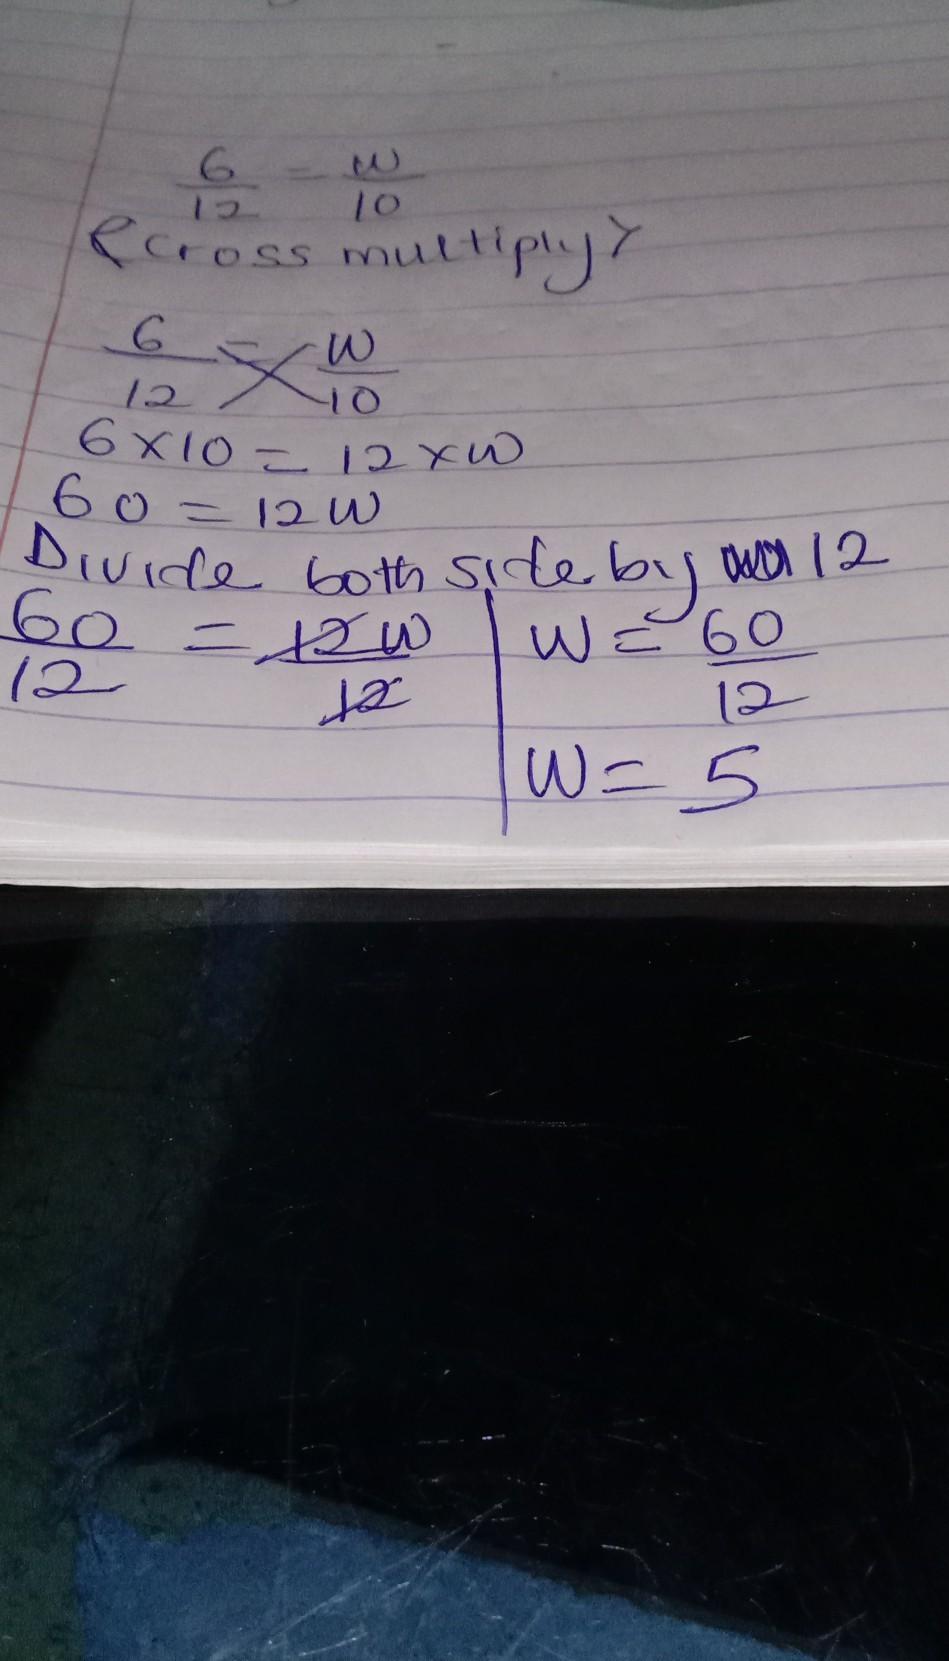 6/12 = w/10
(cross multiply)
6/12 = w/10
6×10 = 12×w
60 = 12w
Divide both side by 12
60/12 = 12w/12
w = 60/12
w = 5